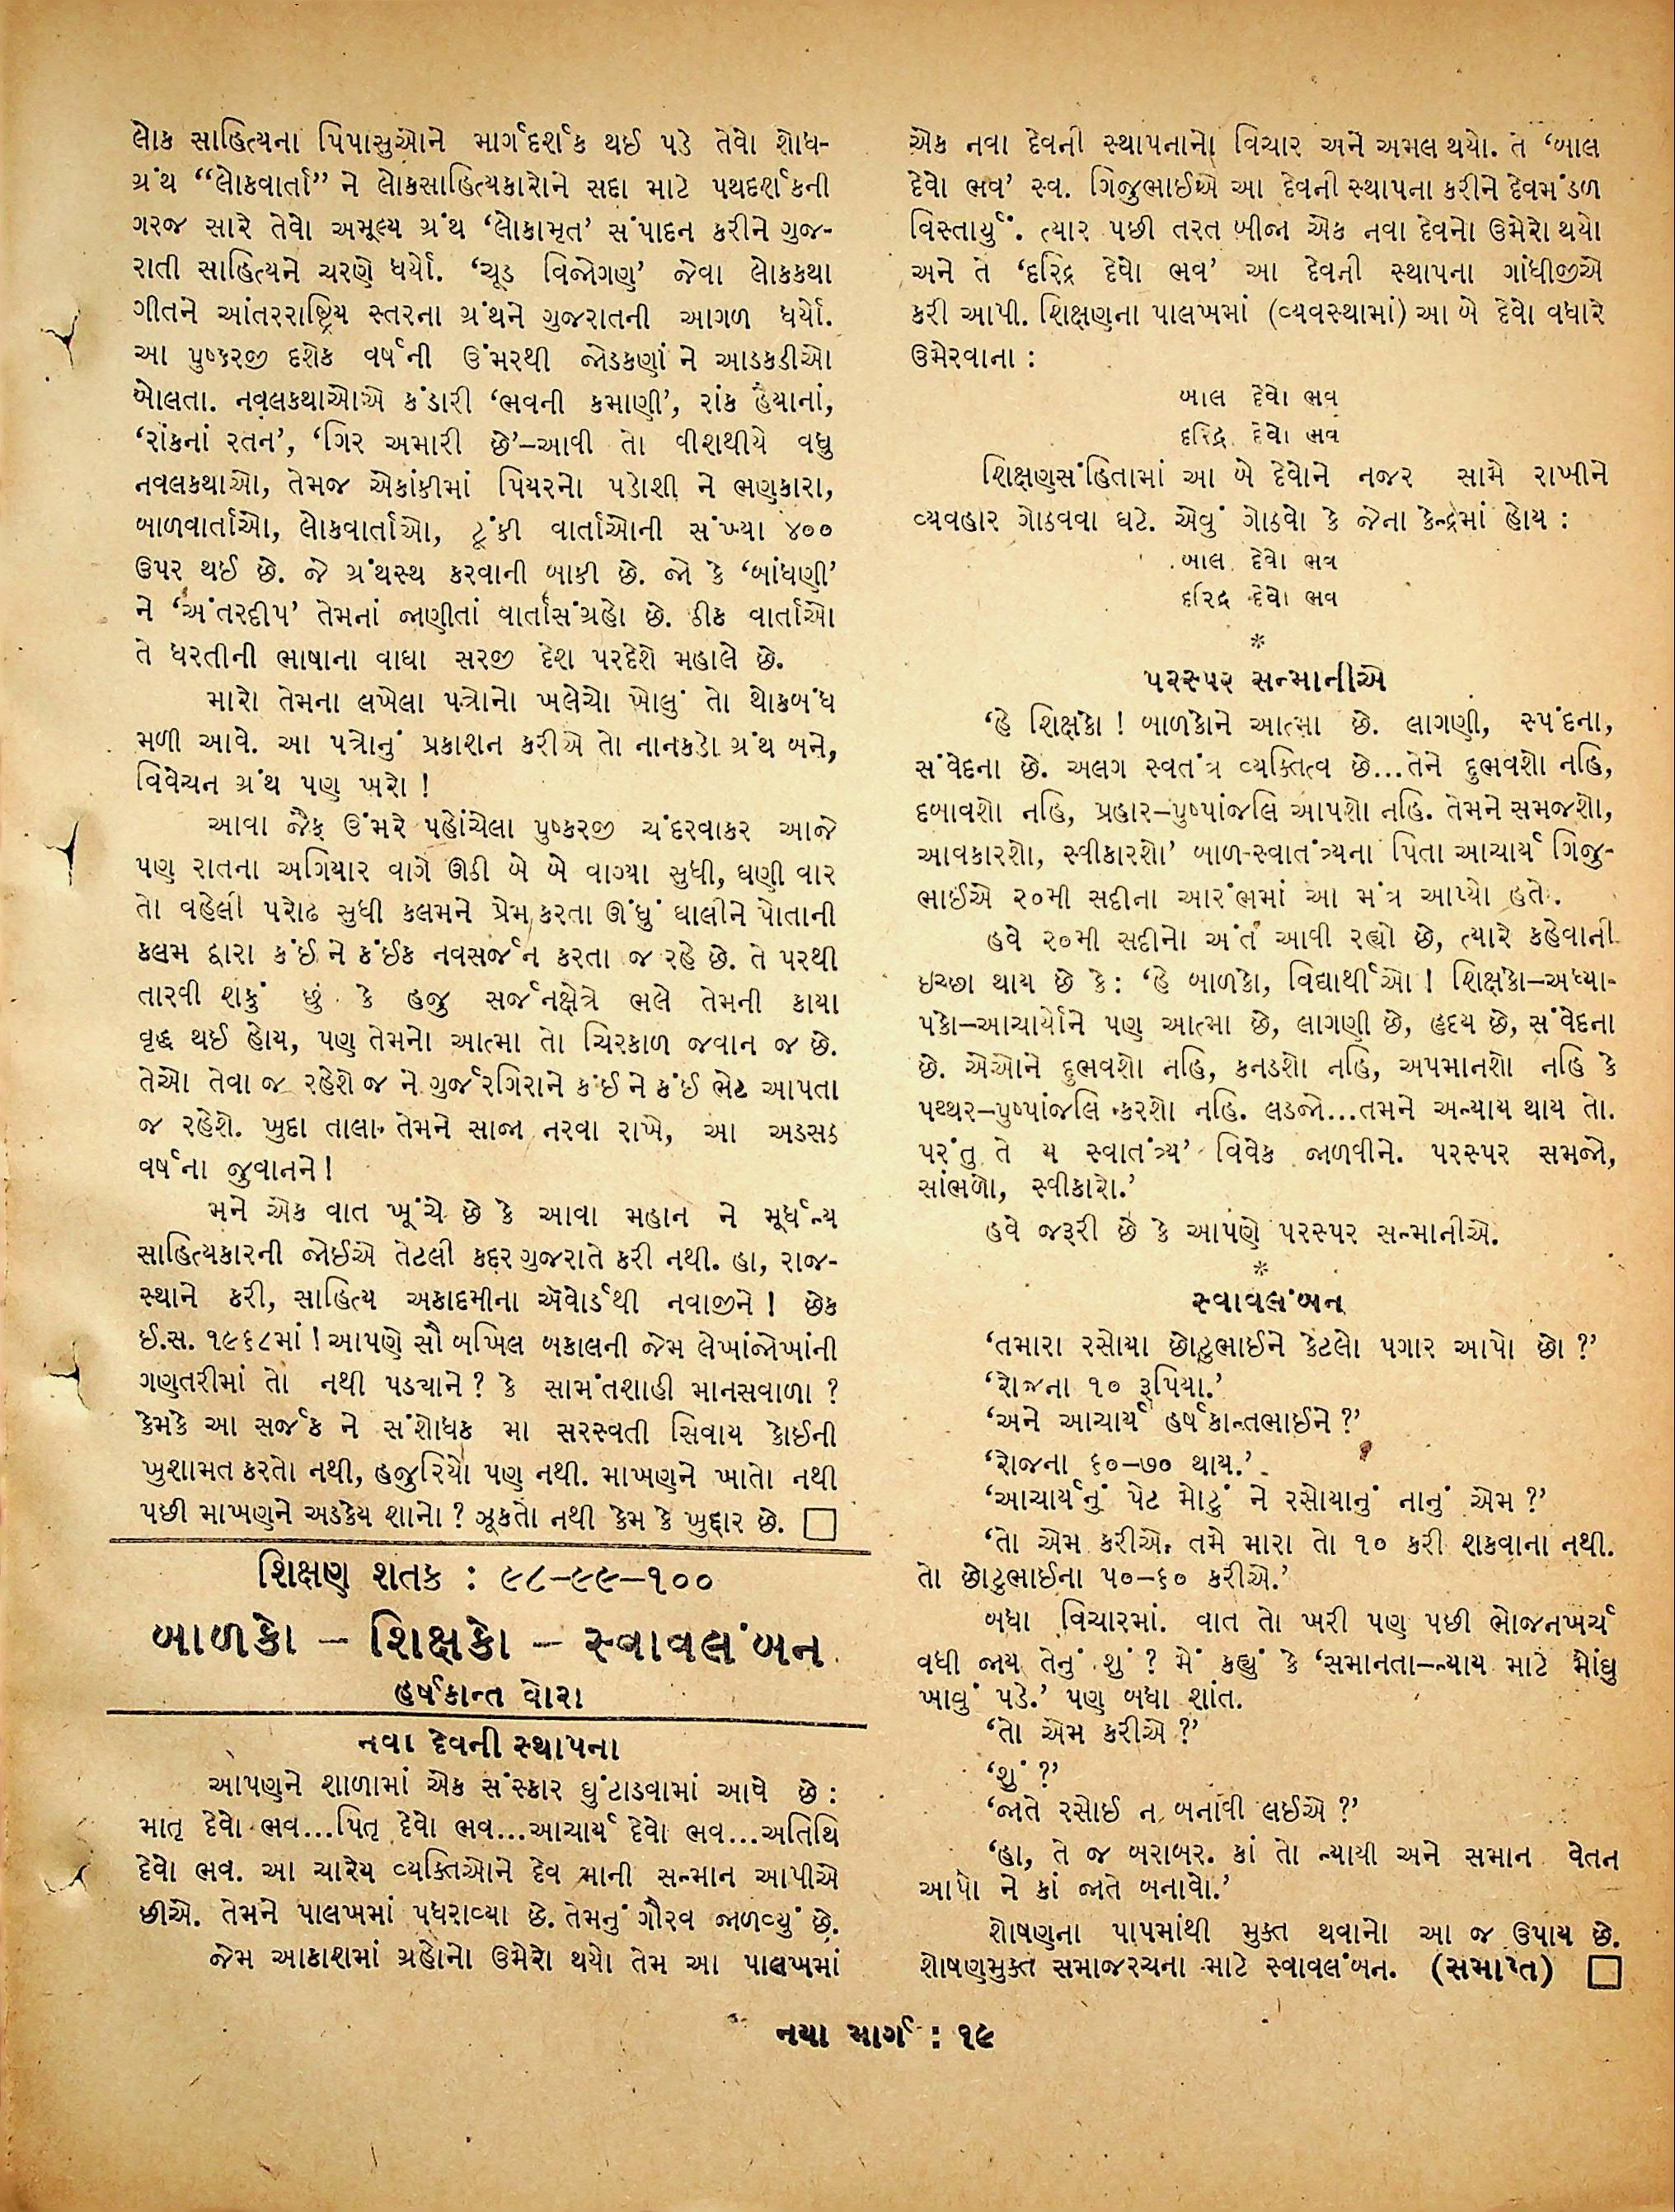 લોક સાહિત્યના પિપાસુઓને માર્ગદર્શક થઈ પડે તેવો શોધ-
ગ્રંથ “લોકવાર્તા” ને લોકસાહિત્યકારોને સદા માટે પથદર્શકની
ગરજ સારે તેવો અમૂલ્ય ગ્રંથ ‘લોકામૃત’ સંપાદન કરીને ગુજ-
રાતી સાહિત્યને ચરણે ધર્યો. ‘ચૂડ વિજોગણ’ જેવા લોકકથા
ગીતને આંતરરાષ્ટ્રિય સ્તરના ગ્રંથને ગુજરાતની આગળ ધર્યો.
આ પુષ્કરજી દશેક વર્ષની ઉંમરથી જોડકણાં ને આડકડીઓ
બોલતા. નવલકથાઓએ કંડારી ‘ભવની કમાણી’, રાંક હૈયાનાં,
‘રાંકનાં રતન’, ‘ગિર અમારી છે’–આવી તો વીશથીયે વધુ
નવલકથાઓ, તેમજ એકાંકીમાં પિયરનો પડોશી ને ભણકારા,
બાળવાર્તાઓ, લોકવાર્તાઓ, ટૂંકી વાર્તાઓની સંખ્યા ૪૦૦
ઉપર થઈ છે. જે ગ્રંથસ્થ કરવાની બાકી છે. જો કે ‘બાંધણી’
ને ‘અંતરદીપ’ તેમનાં જાણીતાં વાર્તાસંગ્રહો છે. ઠીક વાર્તાઓ
તે ધરતીની ભાષાના વાઘા સરજી દેશ પરદેશે મહાલે છે.
મારો તેમના લખેલા પત્રોનો ખલેચો ખોલું તો થોકબંધ
મળી આવે. આ પત્રોનું પ્રકાશન કરીએ તો નાનકડો ગ્રંથ બને,
વિવેચન ગ્રંથ પણ ખરો !
આવા જૈફ ઉંમરે પહોંચેલા પુષ્કરજી ચંદરવાકર આજે
પણ રાતના અગિયાર વાગે ઊઠી બે બે વાગ્યા સુધી, ઘણી વાર
તો વહેલી પરોઢ સુધી કલમને પ્રેમ કરતા ઊંધું ઘાલીને પોતાની
કલમ દ્વારા કંઈ ને કંઈક નવસર્જન કરતા જ રહે છે. તે પરથી
તારવી શકું છું કે હજુ સર્જનક્ષેત્રે ભલે તેમની કાયા
વૃદ્ધ થઈ હોય, પણ તેમનો આત્મા તો ચિરકાળ જવાન જ છે.
તેઓ તેવા જ રહેશે જ ને ગુર્જરગિરાને કંઈ ને કંઈ ભેટ આપતા
જ રહેશે. ખુદા તાલા તેમને સાજા નરવા રાખે, આ અડસઠ
વર્ષના જુવાનને !
મને એક વાત ખૂંચે છે કે આવા મહાન ને મૂર્ધન્ય
સાહિત્યકારની જોઈએ તેટલી કદર ગુજરાતે કરી નથી. હા, રાજ-
સ્થાને કરી, સાહિત્ય અકાદમીના ઍવોર્ડથી નવાજીને ! છેક
ઈ.સ. ૧૯૬૮માં ! આપણે સૌ બખિલ બકાલની જેમ લેખાંજોખાંની
ગણતરીમાં તો નથી પડ્યાને ? કે સામંતશાહી માનસવાળા ?
કેમકે આ સર્જક ને સંશોધક મા સરસ્વતી સિવાય કોઈની
ખુશામત કરતો નથી, હજુરિયો પણ નથી. માખણને ખાતો નથી
પછી માખણને અડકેય શાનો ? ઝૂકતો નથી કેમ કે ખુદ્દાર છે. □
શિક્ષણ શતક : ૯૮–૯૯–૧૦૦
બાળકો – શિક્ષકો – સ્વાવલંબન
હર્ષકાન્ત વોરા
નવા દેવની સ્થાપના
આપણને શાળામાં એક સંસ્કાર ઘુંટાડવામાં આવે છે :
માતૃ દેવો ભવ...પિતૃ દેવો ભવ...આચાર્ય દેવો ભવ...અતિથિ
દેવો ભવ. આ ચારેય વ્યક્તિઓને દેવ માની સન્માન આપીએ
છીએ. તેમને પાલખમાં પધરાવ્યા છે. તેમનું ગૌરવ જાળવ્યું છે.
જેમ આકાશમાં ગ્રહોનો ઉમેરો થયો તેમ આ પાલખમાં
એક નવા દેવની સ્થાપનાનો વિચાર અને અમલ થયો. તે ‘બાલ
દેવો ભવ’ સ્વ. ગિજુભાઈએ આ દેવની સ્થાપના કરીને દેવમંડળ
વિસ્તાર્યું. ત્યાર પછી તરત બીજા એક નવા દેવનો ઉમેરો થયો
અને તે ‘દરિદ્ર દેવો ભવ’ આ દેવની સ્થાપના ગાંધીજીએ
કરી આપી. શિક્ષણના પાલખમાં (વ્યવસ્થામાં) આ બે દેવો વધારે
ઉમેરવાના :
બાલ દેવો ભવ
દરિદ્ર દેવો ભવ
શિક્ષણસંહિતામાં આ બે દેવોને નજર સામે રાખીને
વ્યવહાર ગોઠવવા ઘટે. એવું ગોઠવો કે જેના કેન્દ્રમાં હોય :
બાલ દેવો ભવ
દરિદ્ર દેવો ભવ
*
પરસ્પર સન્માનીએ
‘હે શિક્ષકો ! બાળકોને આત્મા છે. લાગણી, સ્પંદના,
સંવેદના છે. અલગ સ્વતંત્ર વ્યક્તિત્વ છે...તેને દુભવશો નહિ,
દબાવશો નહિ, પ્રહાર–પુષ્પાંજલિ આપશો નહિ. તેમને સમજશો,
આવકારશો, સ્વીકારશો’ બાળ-સ્વાતંત્ર્યના પિતા આચાર્ય ગિજુ-
ભાઈએ ૨૦મી સદીના આરંભમાં આ મંત્ર આપ્યો હતો.
હવે ૨૦મી સદીનો અંત આવી રહ્યો છે, ત્યારે કહેવાની
ઇચ્છા થાય છે કે : ‘હે બાળકો, વિદ્યાર્થીઓ ! શિક્ષકો–અધ્યા-
પકો–આચાર્યોને પણ આત્મા છે, લાગણી છે, હૃદય છે, સંવેદના
છે. એઓને દુભવશો નહિ, કનડશો નહિ, અપમાનશો નહિ કે
પથ્થર–પુષ્પાંજલિ કરશો નહિ. લડજો...તમને અન્યાય થાય તો.
પરંતુ તે ય સ્વાતંત્ર્ય’ વિવેક જાળવીને. પરસ્પર સમજો,
સાંભળો, સ્વીકારો.’
હવે જરૂરી છે કે આપણે પરસ્પર સન્માનીએ.
*
સ્વાવલંબન
‘તમારા રસોયા છોટુભાઈને કેટલો પગાર આપો છો ?’
‘રોજના ૧૦ રૂપિયા.’
‘અને આચાર્ય હર્ષકાન્તભાઈને ?’
‘રોજના ૬૦–૭૦ થાય.’
‘આચાર્યનું પેટ મોટું ને રસોયાનું નાનું એમ ?’
‘તો એમ કરીએ. તમે મારા તો ૧૦ કરી શકવાના નથી.
તો છોટુભાઈના ૫૦–૬૦ કરીએ.’
બધા વિચારમાં. વાત તો ખરી પણ પછી ભોજનખર્ચ
વધી જાય તેનું શું ? મેં કહ્યું કે ‘સમાનતા–ન્યાય માટે મોંઘુ
ખાવું પડે.’ પણ બધા શાંત.
‘તો એમ કરીએ ?’
‘શું ?’
‘જાતે રસોઈ ન બનાવી લઈએ ?’
‘હા, તે જ બરાબર. કાં તો ન્યાયી અને સમાન વેતન
આપો ને કાં જાતે બનાવો.’
શોષણના પાપમાંથી મુક્ત થવાનો આ જ ઉપાય છે.
શોષણમુક્ત સમાજરચના માટે સ્વાવલંબન. (સમાપ્ત) □
નયા માર્ગ : ૧૯